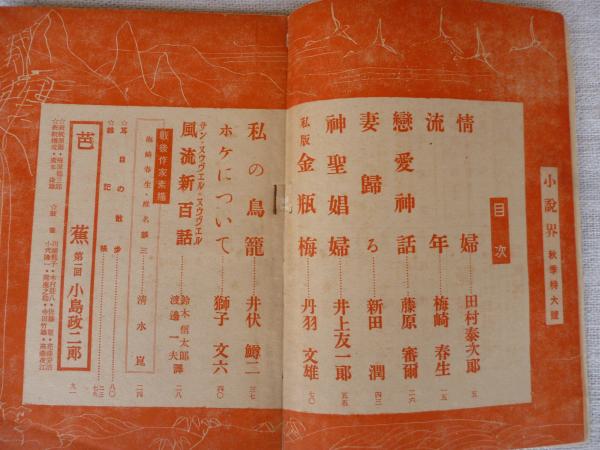 小說界 秋季特大號
目次
情婦……田村泰次郎 五
流年……梅崎春生 一五
戀愛神話……藤原審爾 二六
妻歸る……新田潤 四三
神聖娼婦……井上友一郎 五五
私版金瓶梅……丹羽文雄 七〇
私の鳥籠……井伏鱒二 三七
ボケについて……獅子文六 四〇
サン・ヌウヴエル・ヌウヴエル
風流新百話……鈴木信太郎 渡邊一夫譯 二八
戰後作家素描
梅崎春生・椎名麟三……清水崑 二四
☆耳目の散步……八〇
☆雜記帳……
芭蕉 第一回 小島政二郎 九一